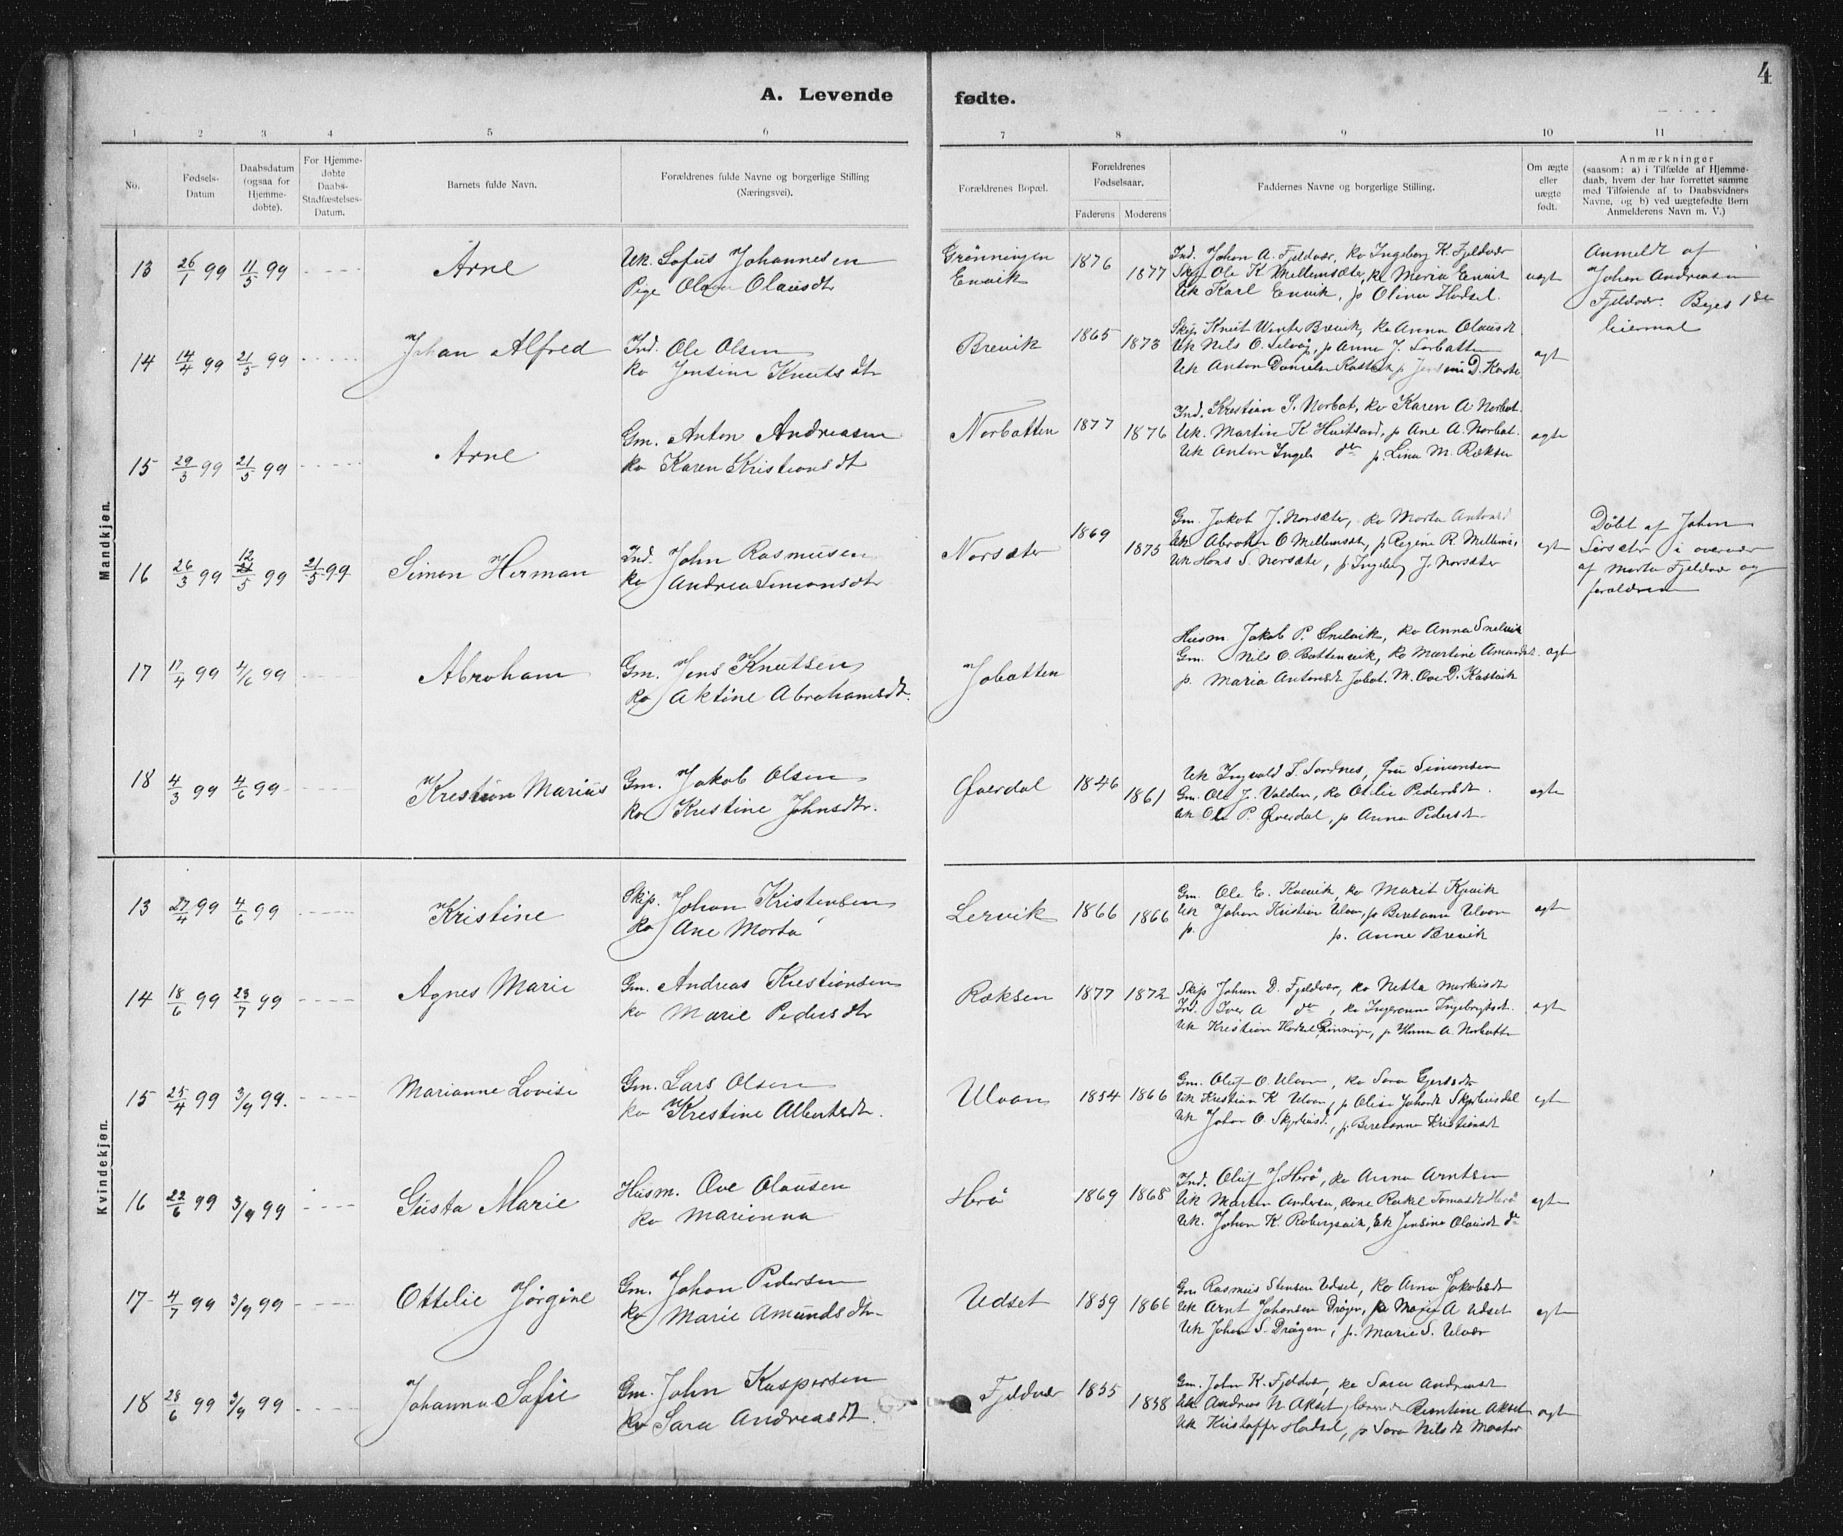 4
A. Levende fødte.
1 2 3 4 5 6 7 8 9 10 11
No.
Fødsels-
Datum
Daabsdatum
(ogsaa for
Hjemme-
døbte).
For Hjemme-
døbte
Daabs-
Stadfæstelses-
Datum.
Barnets fulde Navn.
Forældrenes fulde Navne og borgerlige Stilling
(Næringsvei).
Forældrenes Bopæl.
Forældrenes
Fødselsaar.
Faderens Moderens
Faddernes Navne og borgerlige Stilling.
Om ægte
eller
uægte
født.
Anmærkninger
(saasom: a) i Tilfælde af Hjemme-
daab, hvem der har forrettet samme
med Tilføiende af to Daabsvidners
Navne, og b) ved uægtefødte Børn
Anmelderens Navn m. V.)
Mandkjøn.
13 26/1 99 11/5 99 Arne
Uk. Sofus Johannesen
Pige Olava Olausdtr
Grønningen
Envik
1876 1877
Ind. Johan A. Fjeldvær, ko Ingeborg K Fjeldvær
Skip Ole K Mellemsæter, ko Maria Envik
Uk Karl Envik, p Olina Hodsel.
uægt
Anmeldt af
Johan Andreasen
Fjeldvær. Beges 1ste
leiermal
14 14/4 99 21/5 99 Johan Alfred
Ind. Ole Olsen
ko Jensine Knutsdtr
Brevik 1865 1873
Skip. Knut Winter Brevik, ko Anna Olausdt
Uk Nils O. Selvåg, p Anne J. Sørbatten
Uk Anton Danielsen Kastvik p D. Kastv
ægt
15 29/3 99 21/5 99 Arne
Gm. Anton Andreasen
ko Karen Kristiansdt
Norbatten 1877 1876
Ind. Kristian S. Norbat, ko Karen A Norbat.
Uk. Martin K Hvitsand, p Ane A. Norbat.
Uk Anton Ingels do p. Lina M. Ræksen
ægte
16 26/3 99 12/5 99 21/5 99 Simon Herman
Ind. John Rasmusen
ko Andrea Simonsdtr
Norsæter 1869 1875
Gm. Jakob J. Norsæter, ko Marta Antonsd
Uk Abraham O Mellemsæt, p Regine R. Mellems,
Uk Hans S. Norsæte, p Ingeborg J. Norsæter
ægt
Døbt af Johan
Sørsæter i overvær
af Marta Fjeldvær og
forældrene
17 17/4 99 4/6 99 Abraham
Gm. Jens Knutsen
ko Aktine Abrahamsdt.
Jobatten
Husm. Jakob P. Snelvik, ko Anna Snelvik
Gm. Nils O. Battenvik, ko Martine Amundsdt.
p. Maria Antonsdt Jobat. M. Ove D. Kastvik
ægt
18 4/3 99 4/6 99 Kristian Marius
Gm. Jakob Olsen
ko Kristine Johnsdtr.
Øverdal 1846 1861
Uk Ingvald S. Sandnes, Fru Simonsen
Gm. Ole J. Valden, ko Otilie Pedersdt.
Uk Ole P. Øverdal, p Anna Pedersdt
ægte
Kvindekjøn.
13 27/4 99 4/6 99 Kristine
Skip. Johan Kristensen
ko Ane Marta
Lervik 1866 1866
Gm Ole E. Kvervik, ko Marit Kjørvik
Uk Johan Kristian Ulvan, p Beretanne Ulvan
p. p. Anne Brevik
ægt
14 18/6 99 23/7 99 Agnes Marie
Gm. Andreas Kristiansen
ko Marie Pedersdtr
Ræksen 1877 1872
Skip Johan D. Fjeldvær, ko Netta Markusdt
Ind. Iver A do, ko Ingeranna Ingebrigtsdt.
Uk Kristian Hodsel, p Hanna A. Norbatte
ægt
15 25/4 99 3/9 99. Marianne Lovise
Gm. Lars Olsen
ko Kristine Albertsdtr.
Ulvan 1854 1866
Gm. Oluf O. Ulvan, ko Sara Gjertsdtr
Uk Kristian K Ulvan, p Olise Johansdt Skjerbusdal
Uk Johan O. Skjerbusd, p Beretanna Kristiansdt
ægt
16 22/6 99 3/9 99 Gusta Marie
Husm. Ove Olausen
ko Marianna
Herø 1869 1868
Ind. Oluf J. Herø, ko Anna Arntsen
Uk Martin Andersen, kone Rakel Tomasdt Herø
Uk. Johan K. Robergsvik, Ek Jensine Olausdt do
ægt
17 4/7 99 3/9 99 Ottelie Jørgine
Gm. Johan Pedersen
ko Marie Amundsdtr
Udset 1859 1866
Gm Rasmus Stensen Udset, ko Arna Jakobsdt
Uk Arnt Johansen Drågen, p Marie A Udset
Uk Johan S. Drågen, p. Marie S. Ulvær
ægt
18 28/6 99 3/9 99 Johanna Sofie
Gm. John Kaspersen
ko Sara Andreasdt.
Fjeldvær 1855 1858
Gm. John K. Fjeldvær, ko Sara Andreasdt
Uk Andreas N Akset, Berntine Akset
Uk Kristoffer Hodsel, p Sara Nilsdt Master
ægt